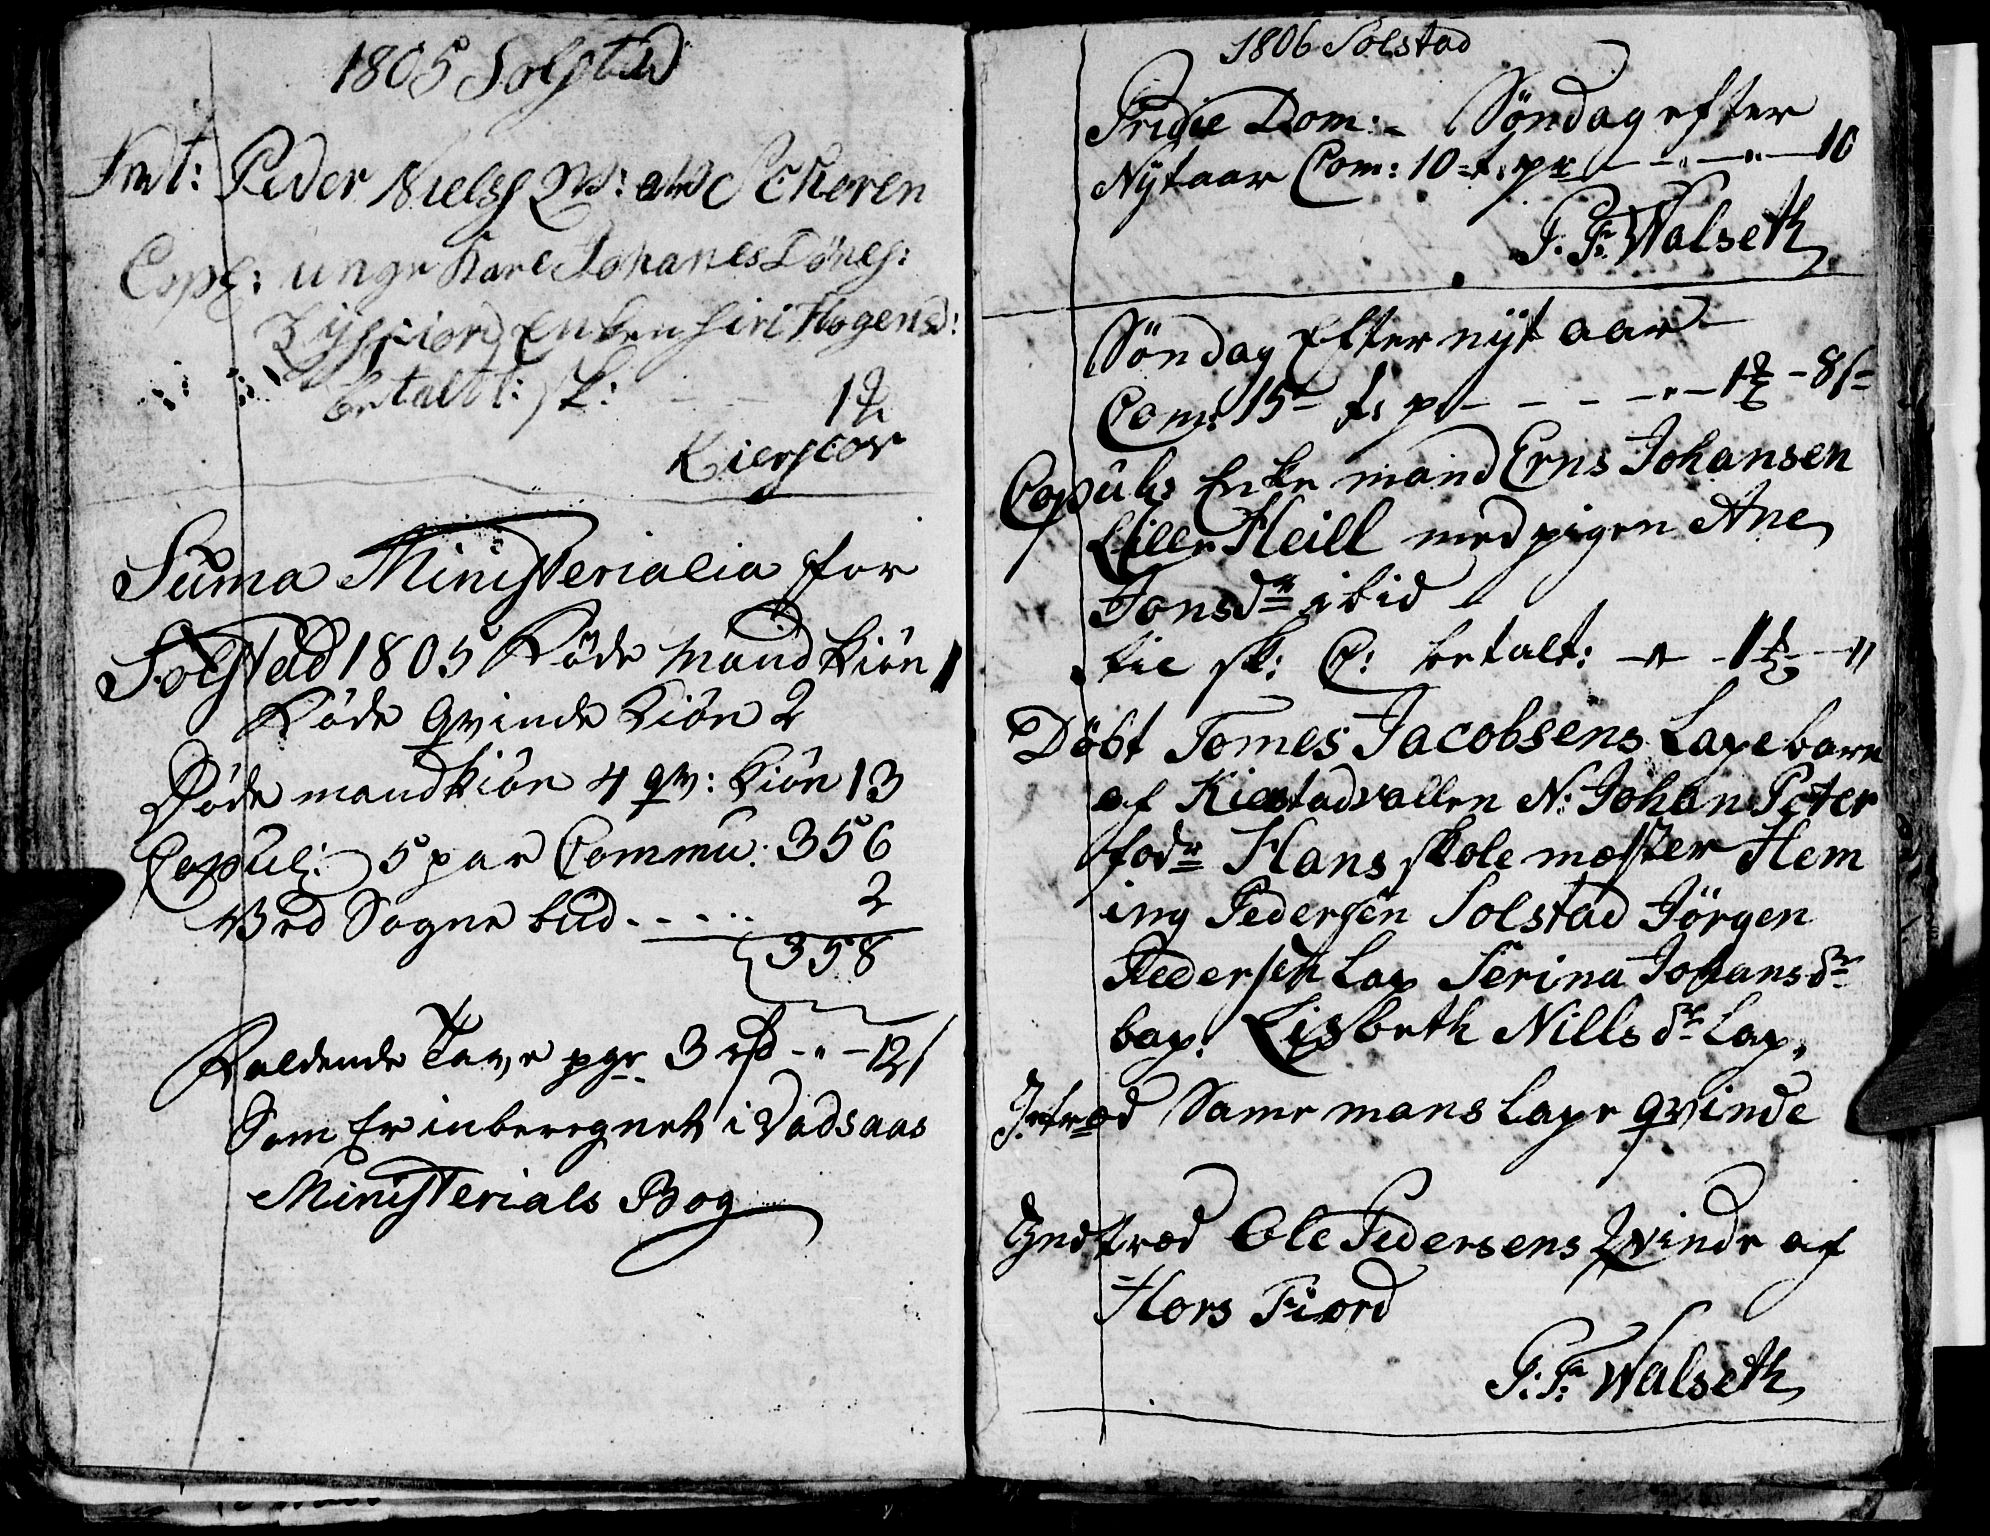 1805 Solstad
Indt: Peder Nielss Qv: Ackeren
Copl: unge Karl Johanes Tönes:
Enken Siri Hogensd:
betalt: sk: 1
Kierscov
Suma Ministerialia for
Solstad 1805 Födde mandkiön 1
Födde qvinde kiön 2
Døde mandkiön 4 qv: kiön 13
Copul: 5 par Commu: 356
Ved Sogne bud - - - - 2
358
Faldende Tave pgr 3 rd - " - 12 s
Som Er inberegnet i Vadsaas
Ministerials Bog
1806 Solstad
Pridie Dom: - Söndag efter
Nytaar Com: 10 - t: pr - - " - " - 10
P. F: Walseth
Söndag Efter nyt aar
Com: 15 t: p - - - - " - 1 - 8 s
Copul: Enke mand Erns Johansen
Lille Heill med pigen Ane
Jonsdr ibid
lic sk: C: betalt: - " - 1 - "
Döbt Tomes Jacobsens Lapebarn
af Kiestadvallen N: Johan Peter
fodr Hans skole mæster Hem
ing Pedersen Solstad Jörgen
Pedersen Lap Serina Johansdr
bap: Lisbeth Nillsdr Lap.
Intræd Same mans Lape qvinde
Indtræd Ole Pedersens Qvinde af
Hors Fiord
P: F: Walseth